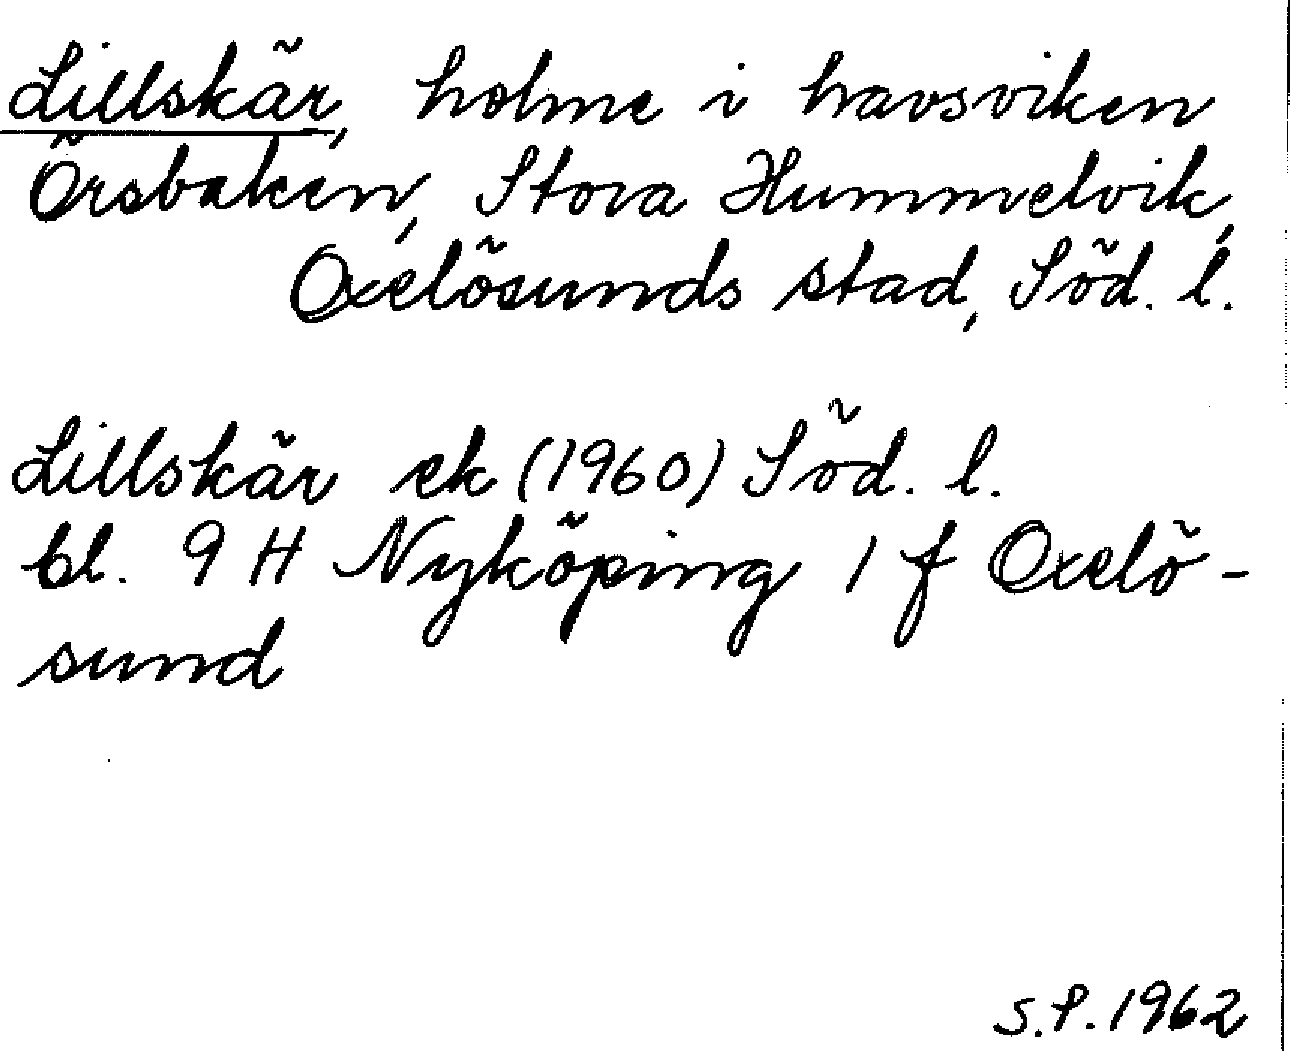 Lillskär, holme i havsviken
Örsbaken, Stora Hummelvik,
Oxelösunds stad, Söd. l.
Lillskär ek (1960) Söd. l.
bl. 9 H Nyköping 1 f Oxelö-
sund
S.P. 1962